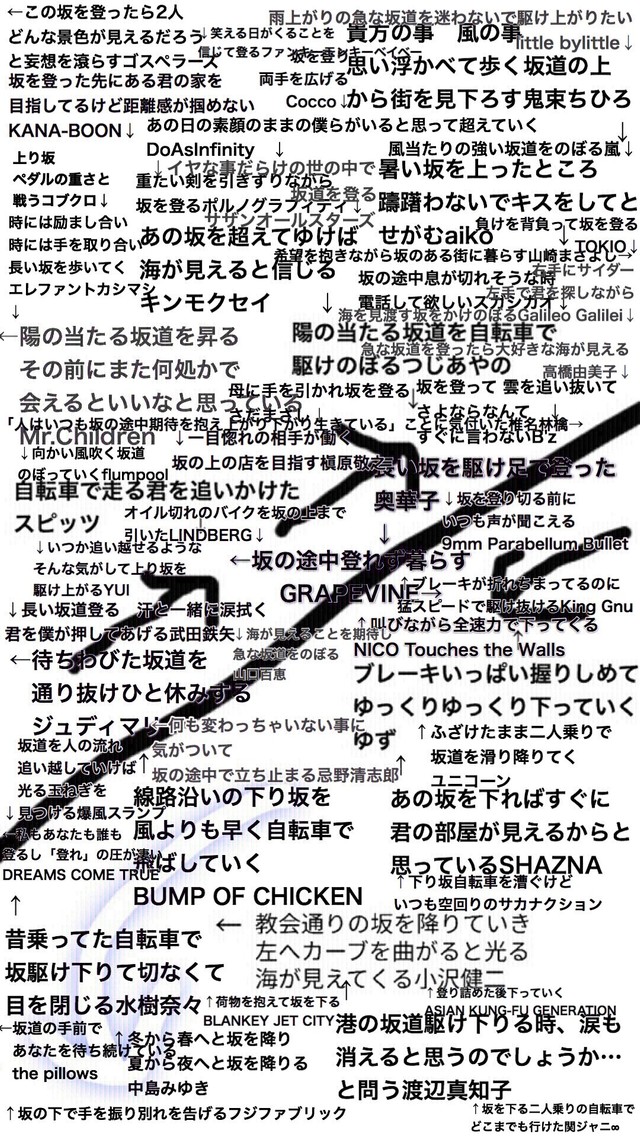 ←この坂を登ったら2人
どんな景色が見えるだろう
と妄想を滾らすゴスペラーズ
坂を登った先にある君の家を
目指してるけど距離感が掴めない
KANA-BOON↓
↓笑える日がくることを
信じて登るファンキーモンキーベイベー
雨上がりの急な坂道を迷わないで駆け上がりたい
little bylittle↓
坂を登り
両手を広げる
Cocco↓
貴方の事　風の事
思い浮かべて歩く坂道の上
から街を見下ろす鬼束ちひろ
↓
あの日の素顔のままの僕らがいると思って超えていく
DoAsInfinity　↓
風当たりの強い坂道をのぼる嵐↓
上り坂
ペダルの重さと
戦うコブクロ↓
↓イヤな事だらけの世の中で
坂道を登る
サザンオールスターズ
重たい剣を引きずりながら
坂を登るポルノグラフィティ↓
暑い坂を上ったところ
躊躇わないでキスをしてと
せがむaiko
↓
負けを背負って坂を登る
TOKIO↓
時には励まし合い
時には手を取り合い
長い坂を歩いてく
エレファントカシマシ
↓
あの坂を超えてゆけば
海が見えると信じる
キンモクセイ　↓
希望を抱きながら坂のある街に暮らす山崎まさよし→
坂の途中息が切れそうな時
電話して欲しいスガシカオ↓
右手にサイダー
左手で君を探しながら
海を見渡す坂をかけのぼるGalileo Galilei↓
←陽の当たる坂道を昇る
その前にまた何処かで
会えるといいなと思っている
Mr.Children
陽の当たる坂道を自転車で
駆けのぼるつじあやの
急な坂道を登ったら大好きな海が見える
高橋由美子↓
母に手を引かれ坂を登る
さだまさし↓
坂を登って 雲を追い抜いて
さよならなんて　↓
すぐに言わないB'z
「人はいつも坂の途中期待を抱え上がり下がり生きている」ことに気付いた椎名林檎→
↓向かい風吹く坂道
のぼっていくflumpool
↓一目惚れの相手が働く
坂の上の店を目指す槇原敬之
長い坂を駆け足で登った
奥華子
↓
自転車で走る君を追いかけた
スピッツ
オイル切れのバイクを坂の上まで
引いたLINDBERG↓
↓坂を登り切る前に
いつも声が聞こえる
9mm Parabellum Bullet
↓いつか追い越せるような
そんな気がして上り坂を
駆け上がるYUI
←坂の途中登れず暮らす
GRAPEVINE→
↑ブレーキが折れちまってるのに
猛スピードで駆け抜けるKing Gnu
↓長い坂道登る　汗と一緒に涙拭く
君を僕が押してあげる武田鉄矢
↓海が見えることを期待し
急な坂道をのぼる
山口百恵
↑叫びながら全速力で下ってくる
NICO Touches the Walls
←待ちわびた坂道を
通り抜けひと休みする
ジュディマリ
ブレーキいっぱい握りしめて
ゆっくりゆっくり下っていく
ゆず
←何も変わっちゃいない事に
気がついて
坂の途中で立ち止まる忌野清志郎
↑
坂道を人の流れ
追い越していけば↑
光る玉ねぎを
↓見つける爆風スランプ
↑ふざけたまま二人乗りで
坂道を滑り降りてく
ユニコーン
←私もあなたも誰も
登るし「登れ」の圧が凄い
DREAMS COME TRUE
↑
線路沿いの下り坂を
風よりも早く自転車で
飛ばしていく
BUMP OF CHICKEN
あの坂を下ればすぐに
君の部屋が見えるからと
思っているSHAZNA
↑下り坂自転車を漕ぐけど
いつも空回りのサカナクション
昔乗ってた自転車で
坂駆け下りて切なくて
目を閉じる水樹奈々
←　教会通りの坂を降りていき
左へカーブを曲がると光る
海が見えてくる小沢健二
↑荷物を抱えて坂を下る
BLANKEY JET CITY
↑
↑登り詰めた後下っていく
ASIAN KUNG-FU GENERATION
←坂道の手前で
あなたを待ち続けている
the pillows
↑冬から春へと坂を降り
夏から夜へと坂を降りる
中島みゆき
港の坂道駆け下りる時、涙も
消えると思うのでしょうか…
と問う渡辺真知子
↑坂の下で手を振り別れを告げるフジファブリック
↑坂を下る二人乗りの自転車で
どこまでも行けた関ジャニ∞